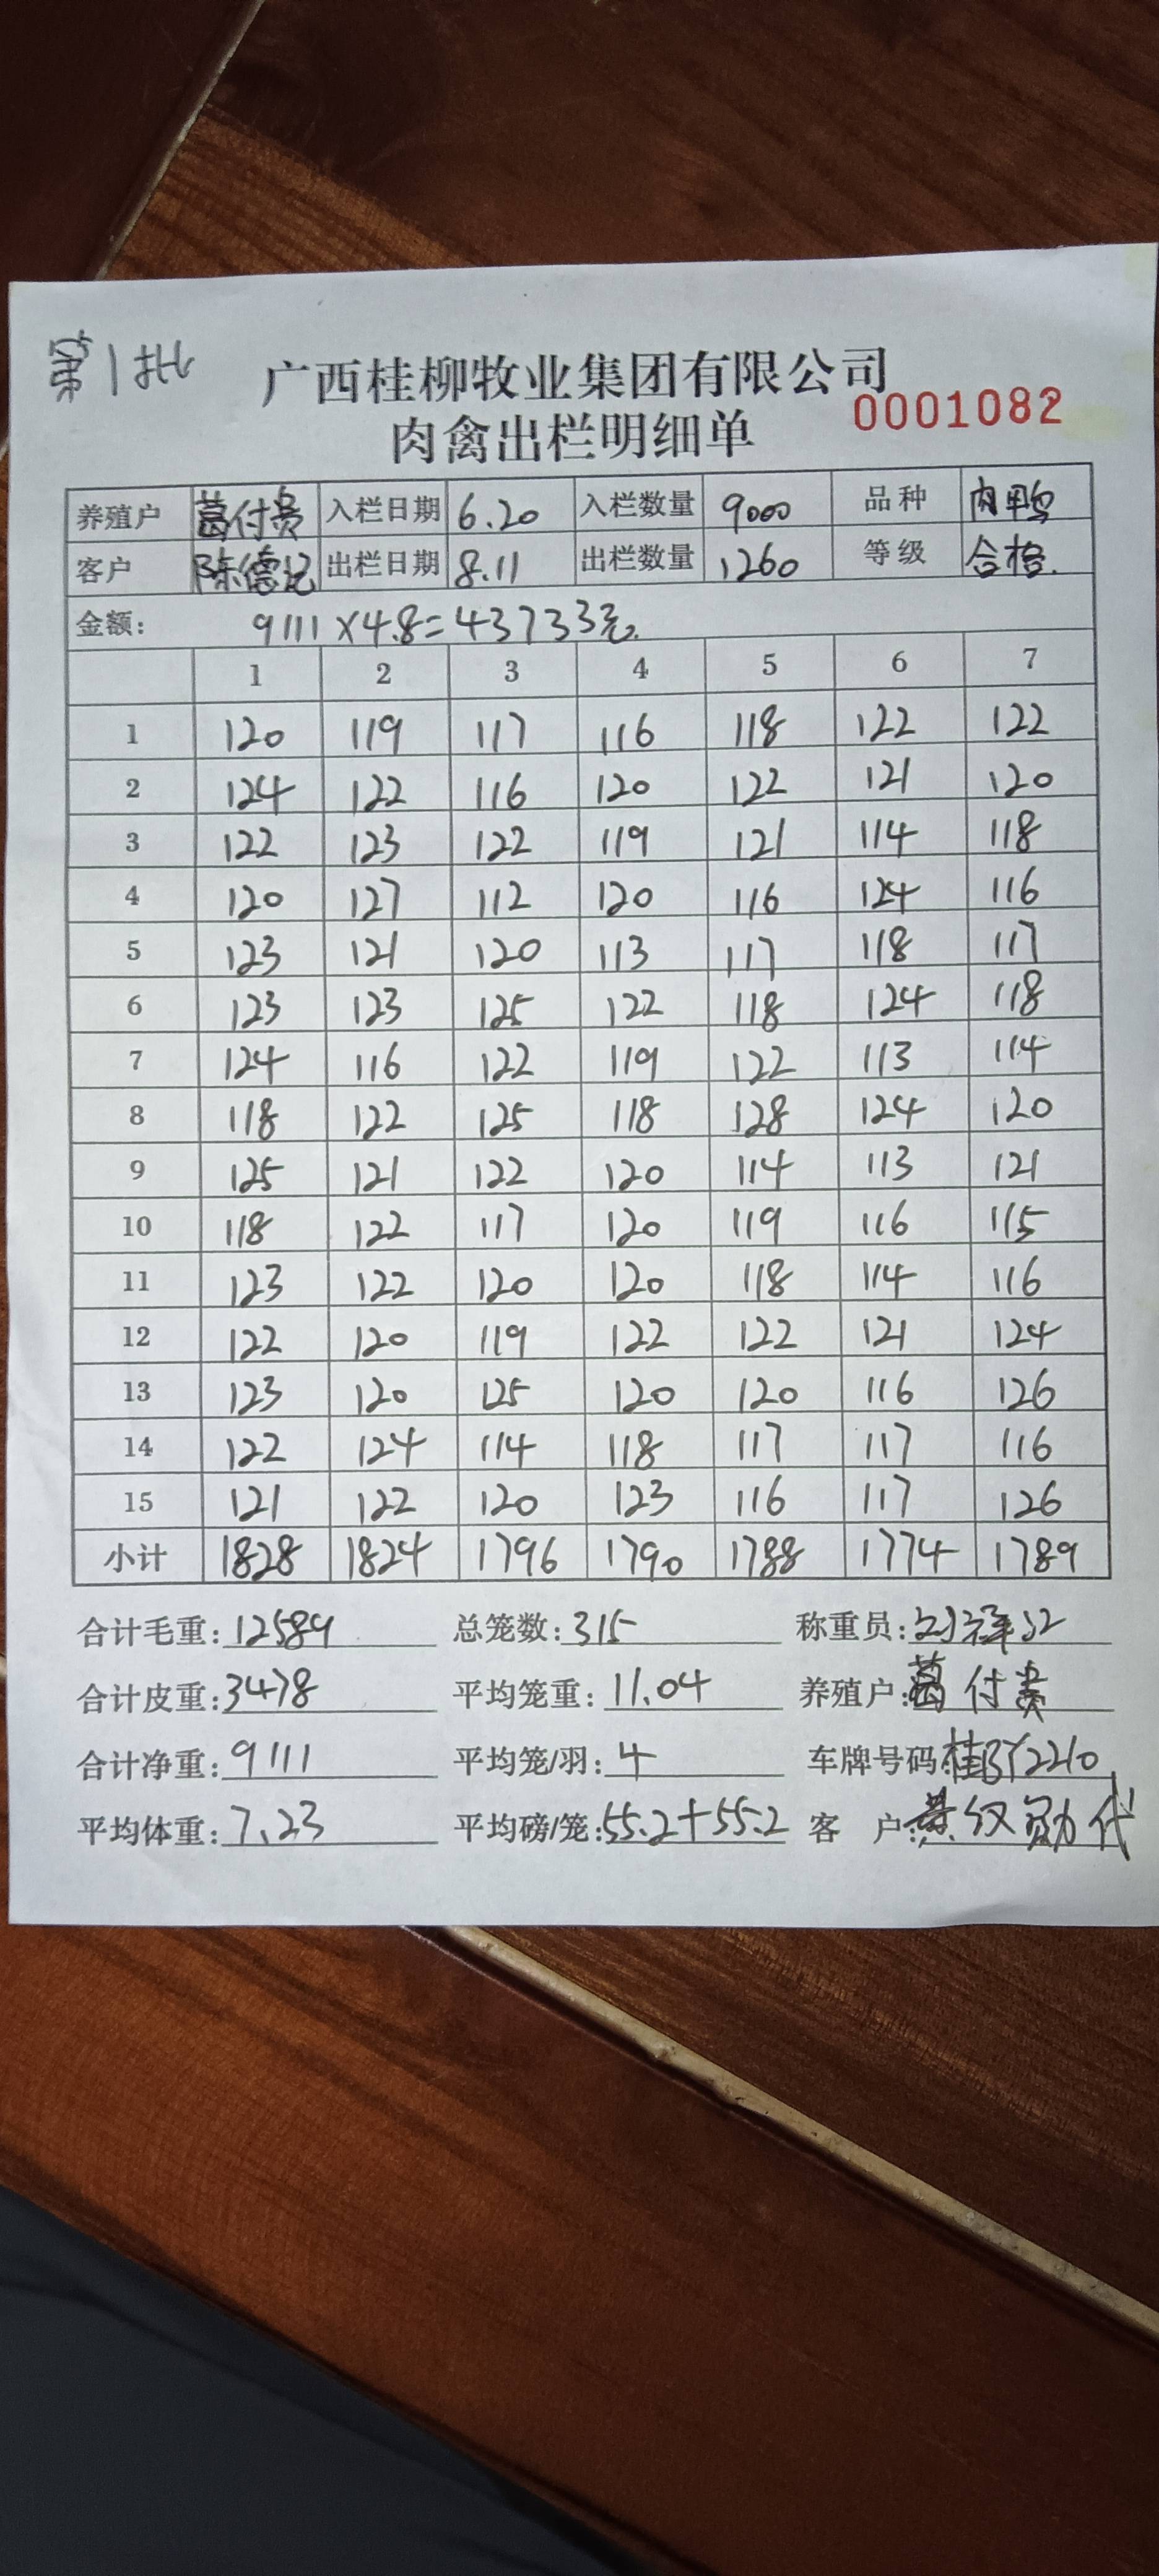 第1批
广西桂柳牧业集团有限公司
0001082
肉禽出栏明细单
养殖户 葛付贵 入栏日期 6.20 入栏数量 9000 品种 肉鸭
客户 陈德记 出栏日期 8.11 出栏数量 1260 等级 合格.
金额: 9111×4.8=43733元.
1 2 3 4 5 6 7
1 120 119 117 116 118 122 122
2 124 122 116 120 122 121 120
3 122 123 122 119 121 114 118
4 120 127 112 120 116 124 116
5 123 121 120 113 117 118 117
6 123 123 125 122 118 124 118
7 124 116 122 119 122 113 114
8 118 122 125 118 128 124 120
9 125 121 122 120 114 113 121
10 118 122 117 120 119 116 115
11 123 122 120 120 118 114 116
12 122 120 119 122 122 121 124
13 123 120 125 120 120 116 126
14 122 124 114 118 117 117 116
15 121 122 120 123 116 117 126
小计 1828 1824 1796 1790 1788 1774 1789
合计毛重: 12589 总笼数: 315 称重员:
合计皮重: 3478 平均笼重: 11.04 养殖户: 葛付贵
合计净重: 9111 平均笼/羽: 4 车牌号码: 桂BY2210
平均体重: 7.23 平均磅/笼: 55.2+55.2 客户: 代